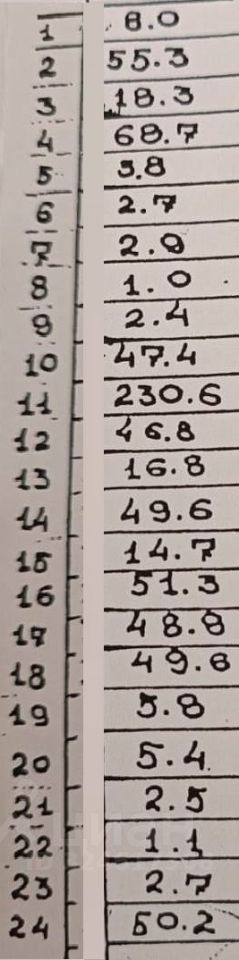 1 8.0
2 55.3
3 18.3
4 68.7
5 3.8
6 2.7
7 2.9
8 1.0
9 2.4
10 47.4
11 230.6
12 46.8
13 16.8
14 49.6
15 14.7
16 51.3
17 48.8
18 49.6
19 5.8
20 5.4
21 2.5
22 1.1
23 2.7
24 50.2